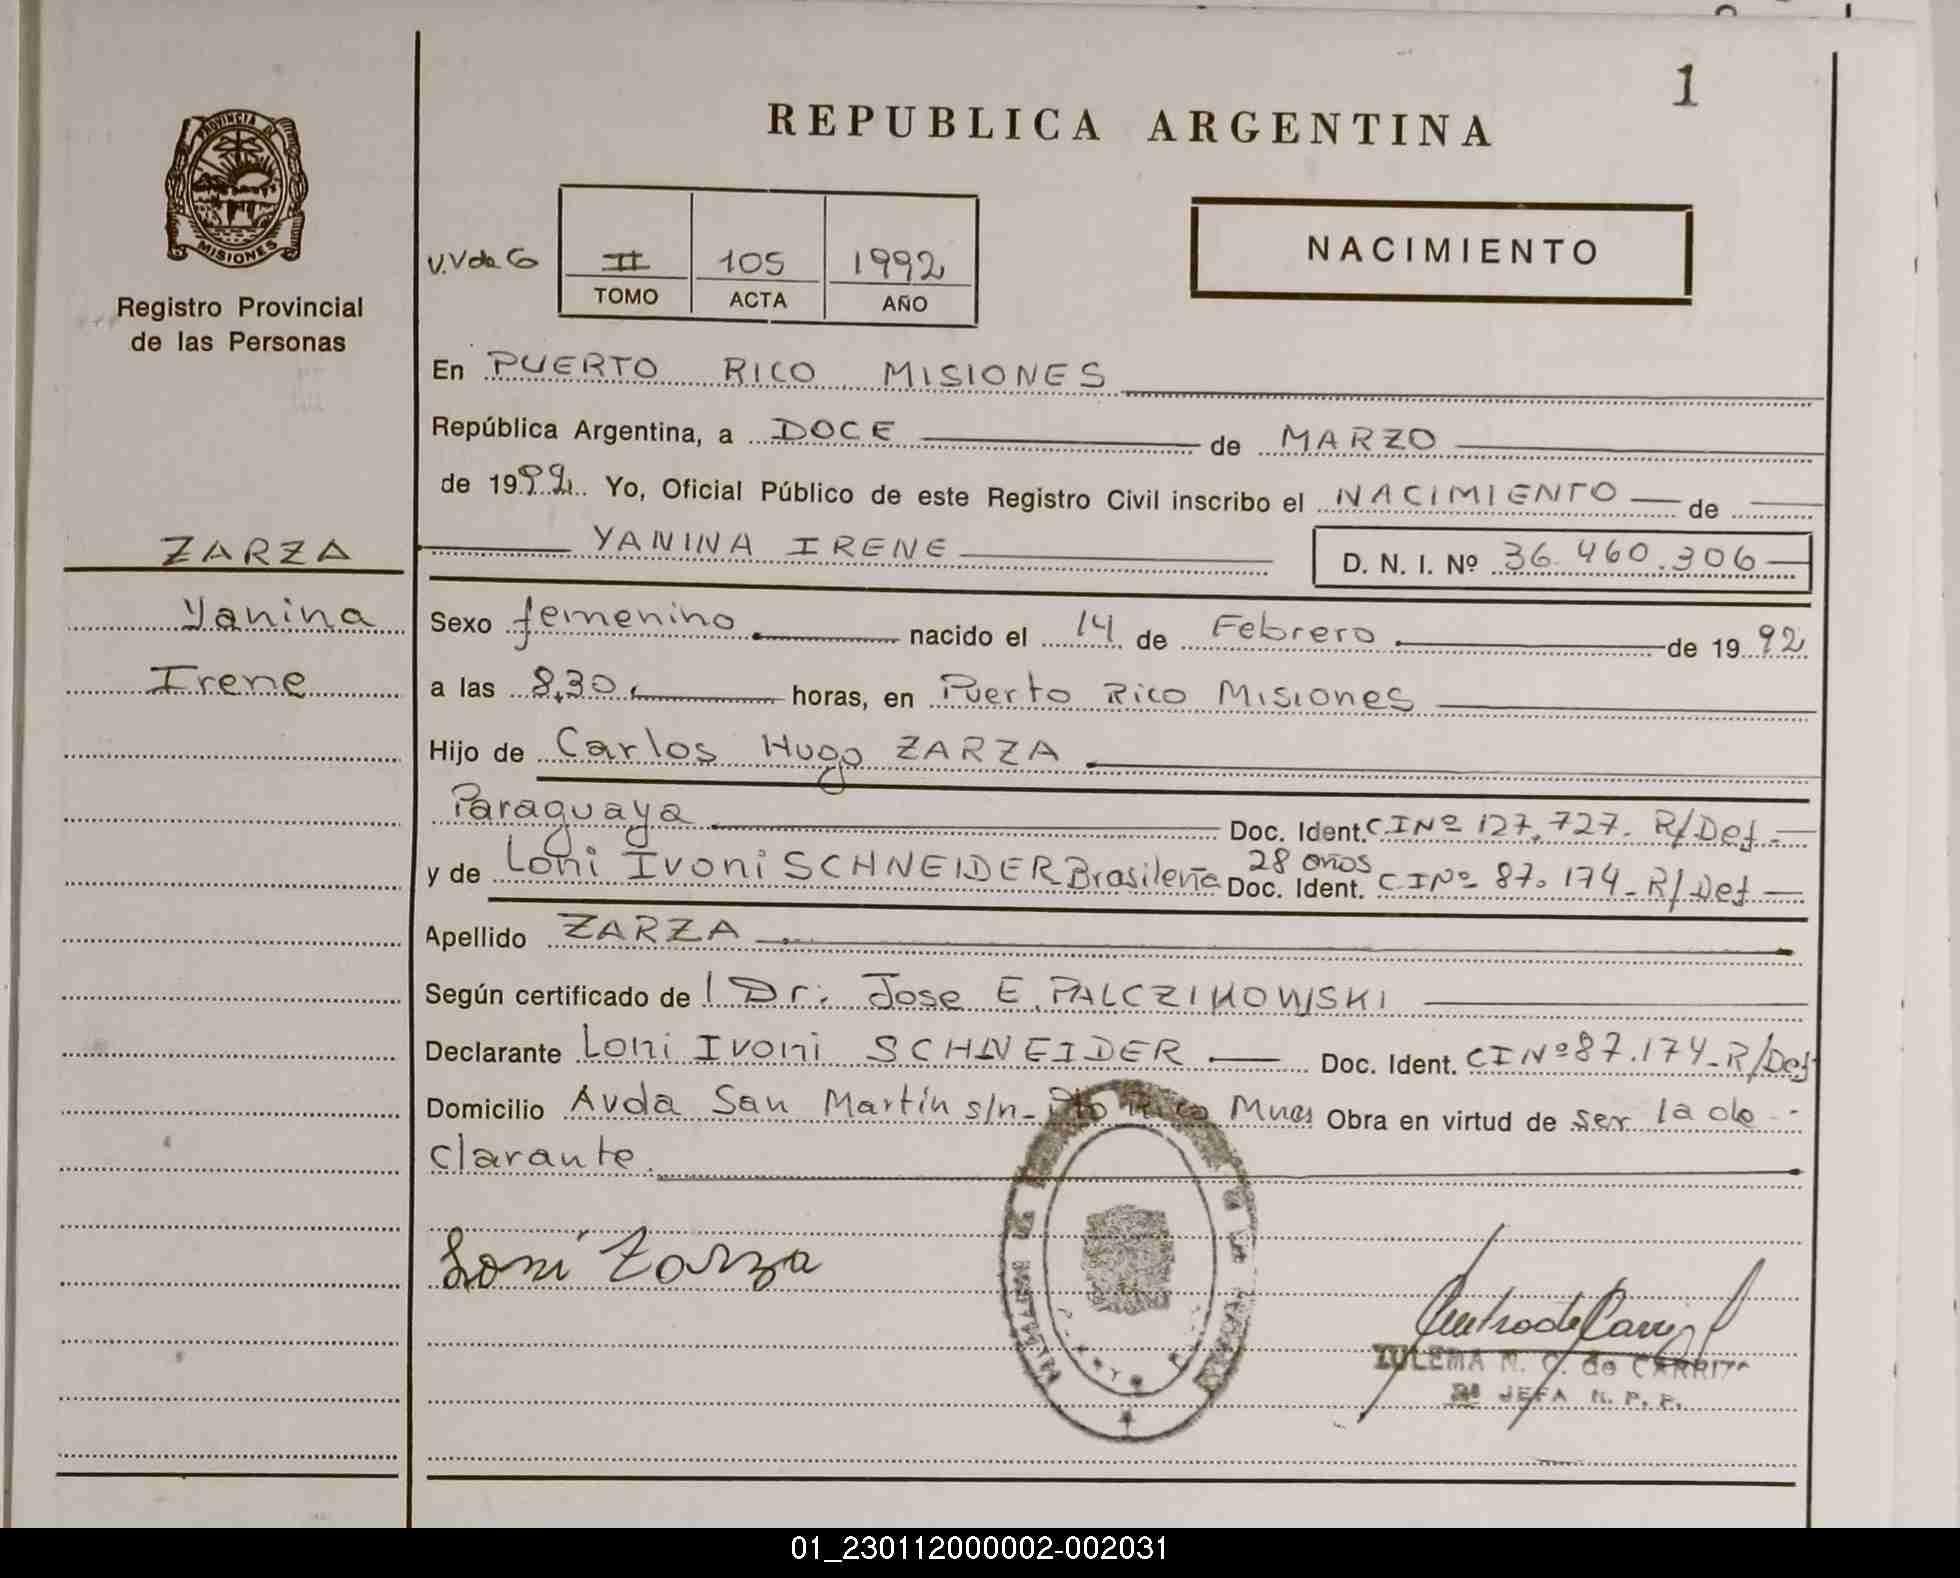 1
REPUBLICA ARGENTINA
PROVINCIA DE
MISIONES
Registro Provincial
de las Personas
V.V da G
II 105 1992
TOMO ACTA AÑO
NACIMIENTO
En PUERTO RICO MISIONES
República Argentina, a DOCE de MARZO
de 1992. Yo, Oficial Público de este Registro Civil inscribo el NACIMIENTO de
YANINA IRENE D. N. I. Nº 36.460.306
ZARZA
Yanina
Irene
Sexo femenino nacido el 14 de Febrero de 1992
a las 8,30 horas, en Puerto Rico Misiones
Hijo de Carlos Hugo ZARZA
Paraguaya Doc. Ident. C.I Nº 127.727. R/Def.-
y de Loni Ivoni SCHNEIDER Brasileña 28 años Doc. Ident. C.I Nº 87.174-R/Def
Apellido ZARZA
Según certificado de l Dr. Jose E. PALCZIKOWSKI
Declarante Loni Ivoni SCHNEIDER Doc. Ident. CI Nº 87.174-R/Def
Domicilio Avda San Martín s/n- Pto Rico Mnes Obra en virtud de ser la de-
clarante.
Loni Zarza
ZULEMA N. C. de
JEFA
01_230112000002-002031